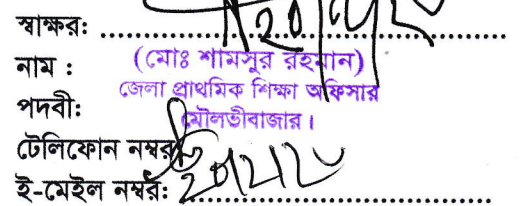 স্বাক্ষর: ....................................................
নাম : (মোঃ শামসুর রহমান)
জেলা প্রাথমিক শিক্ষা অফিসার
পদবী: মৌলভীবাজার।
টেলিফোন নম্বর
ই-মেইল নম্বর: ....................................................